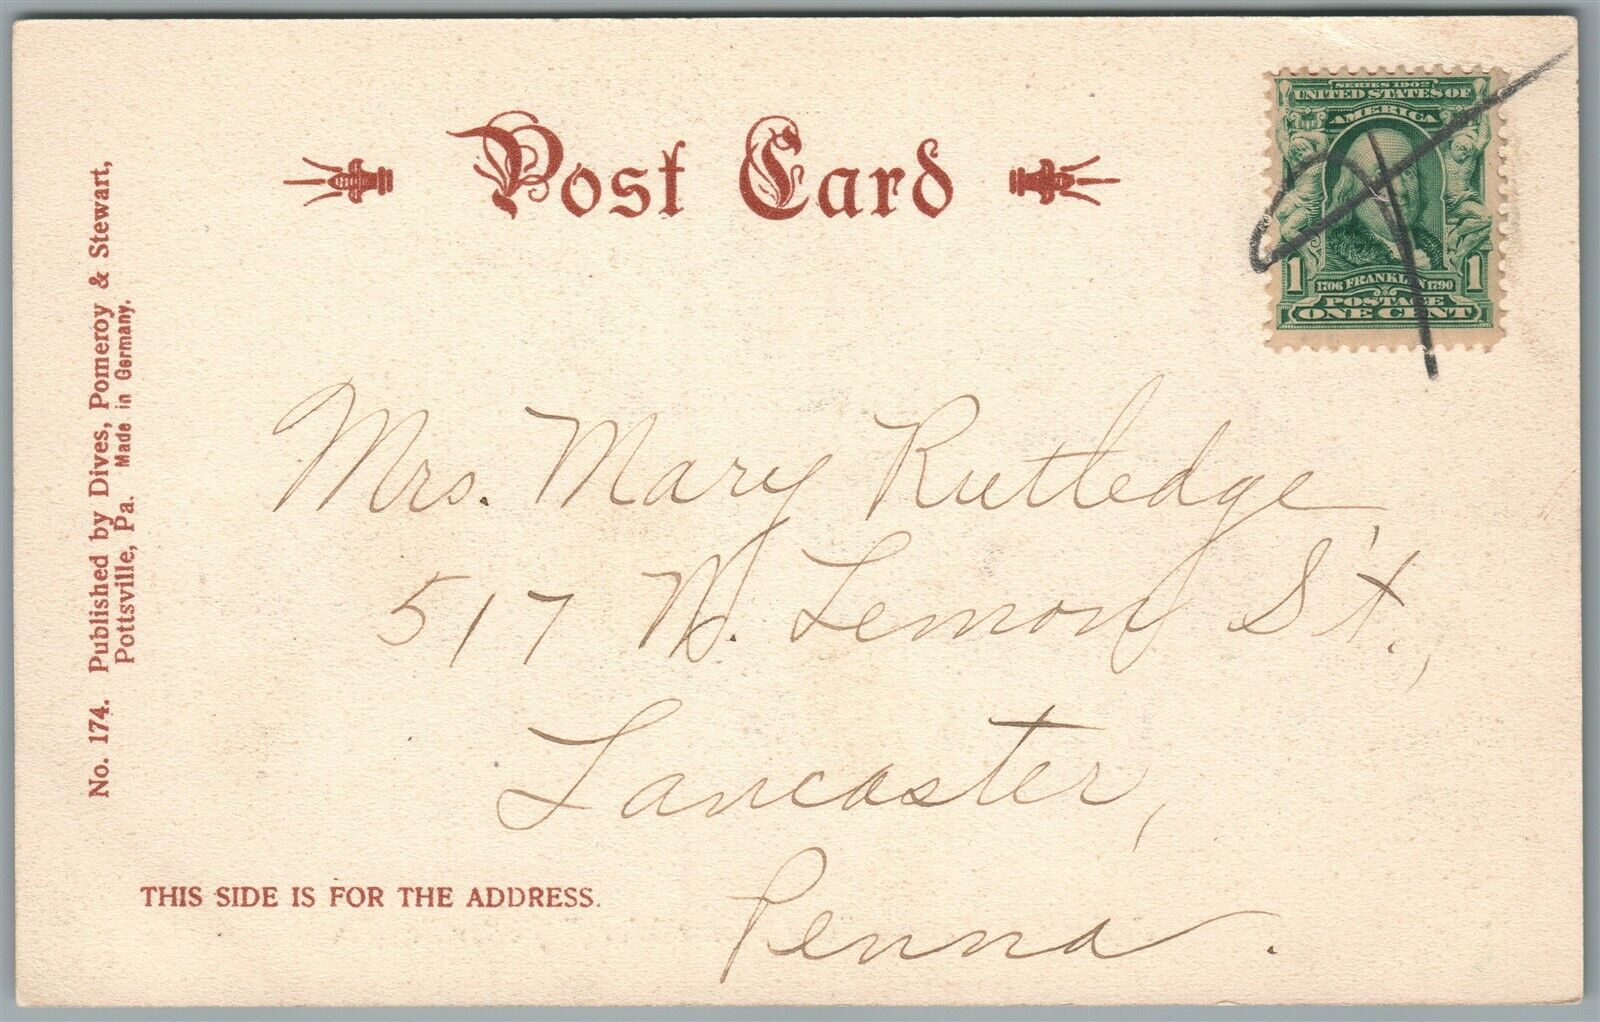 Post Card
SERIES 1902
UNITED STATES OF
AMERICA
1 1706 FRANKLIN 1790 1
POSTAGE
ONE CENT
No. 174. Published by Dives, Pomeroy & Stewart,
Pottsville, Pa. Made in Germany.
Mrs. Mary Rutledge
517 N. Lemon St.,
Lancaster,
Penna.
THIS SIDE IS FOR THE ADDRESS.